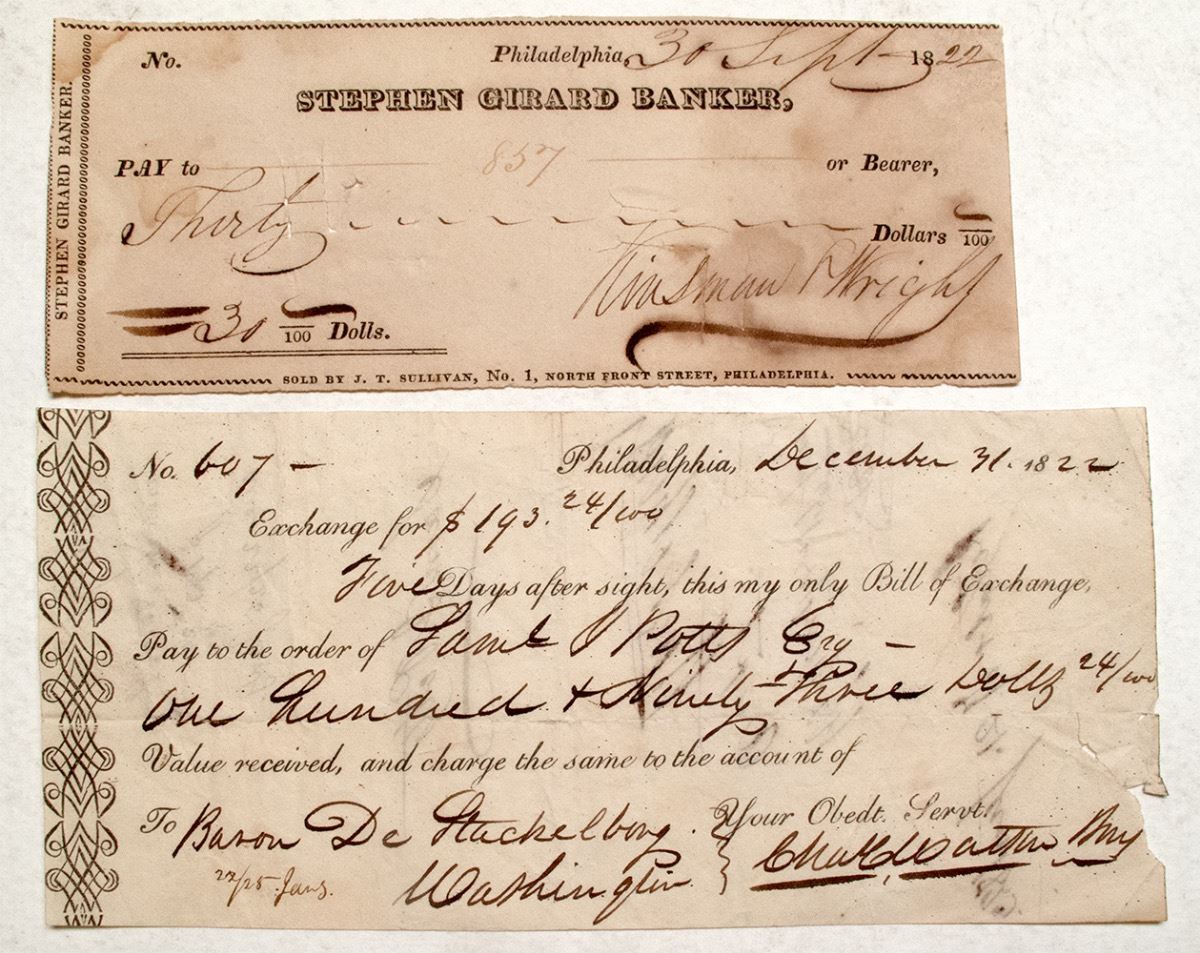 STEPHEN GIRARD BANKER.
No. Philadelphia, 30 Sept 1822
STEPHEN GIRARD BANKER,
PAY to 857 or Bearer,
Thirty Dollars /100
30 /100 Dolls.
Kinsman & Wright
SOLD BY J. T. SULLIVAN, No. 1, NORTH FRONT STREET, PHILADELPHIA.
No. 607 – Philadelphia, December 31. 1822
Exchange for $ 193. 24/100
Five Days after sight, this my only Bill of Exchange,
Pay to the order of Potts Esq –
One Hundred & Ninety Three Dolls 24/100
Value received, and charge the same to the account of
To Baron De Stackelberg. Your Obedt. Servt.
Washington
22/25 Jany.